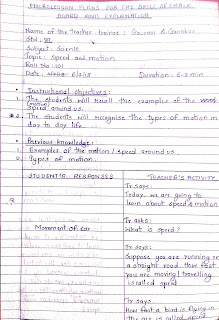 MICROLESSON PLANS FOR THE SKILL OF
BOARD AND EXPLANATION.
Name of the Teacher trainee : Gourav
Std : VII
Subject : Science
Topic : Speed and motion
Roll No : 101
Date : 6/2/18 Duration : 5-6 min
Instructional objectives :
1. The students will recall the examples of the
(motion)
speed around us.
2. The students will recognise the types of motion in
day to day life.
Previous knowledge :
1. Examples of the motion / speed around us.
2. Types of motion.
STUDENT'S RESPONSES TEACHER'S ACTIVITY
Tr says :
Today we are going to
learn about speed & motion
Tr asks :
Movement of car What is speed ?
Tr says :
Suppose you are running on
a straight road. How fast
you are moving / travelling
is called speed
Tr says :
How fast a bird is flying in
the air is called speed